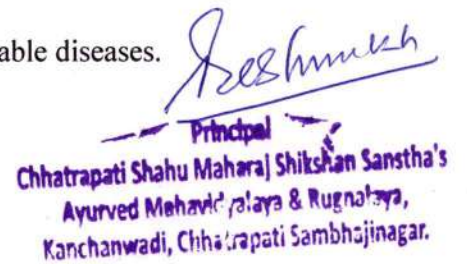 able diseases.
Deshmukh
Principal
Chhatrapati Shahu Maharaj Shikshan Sanstha's
Ayurved Mahavidyalaya & Rugnalaya,
Kanchanwadi, Chhatrapati Sambhajinagar.